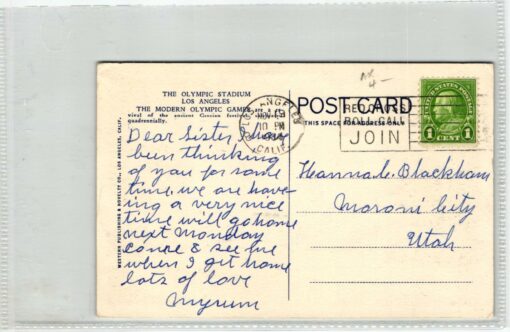 THE OLYMPIC STADIUM
LOS ANGELES
THE MODERN OLYMPIC GAMES are a re-
vival of the ancient Grecian festival
quadrennially.
WESTERN PUBLISHING & NOVELTY CO., LOS ANGELES, CALIF.
Dear Sister I have
been thinking
of you for some
time. we are hav-
ing a very nice
time will go home
next Monday
come & see me
when I get home
lots of love
Myrum
LOS ANGELES
NOV
10 PM
CALIF.
POST CARD
THIS SPACE FOR ADDRESS ONLY
RED CROSS
ROLL CALL
JOIN
UNITED STATES POSTAGE
1 CENT 1
4-
Hanna C. Blackham
Moroni City
Utah